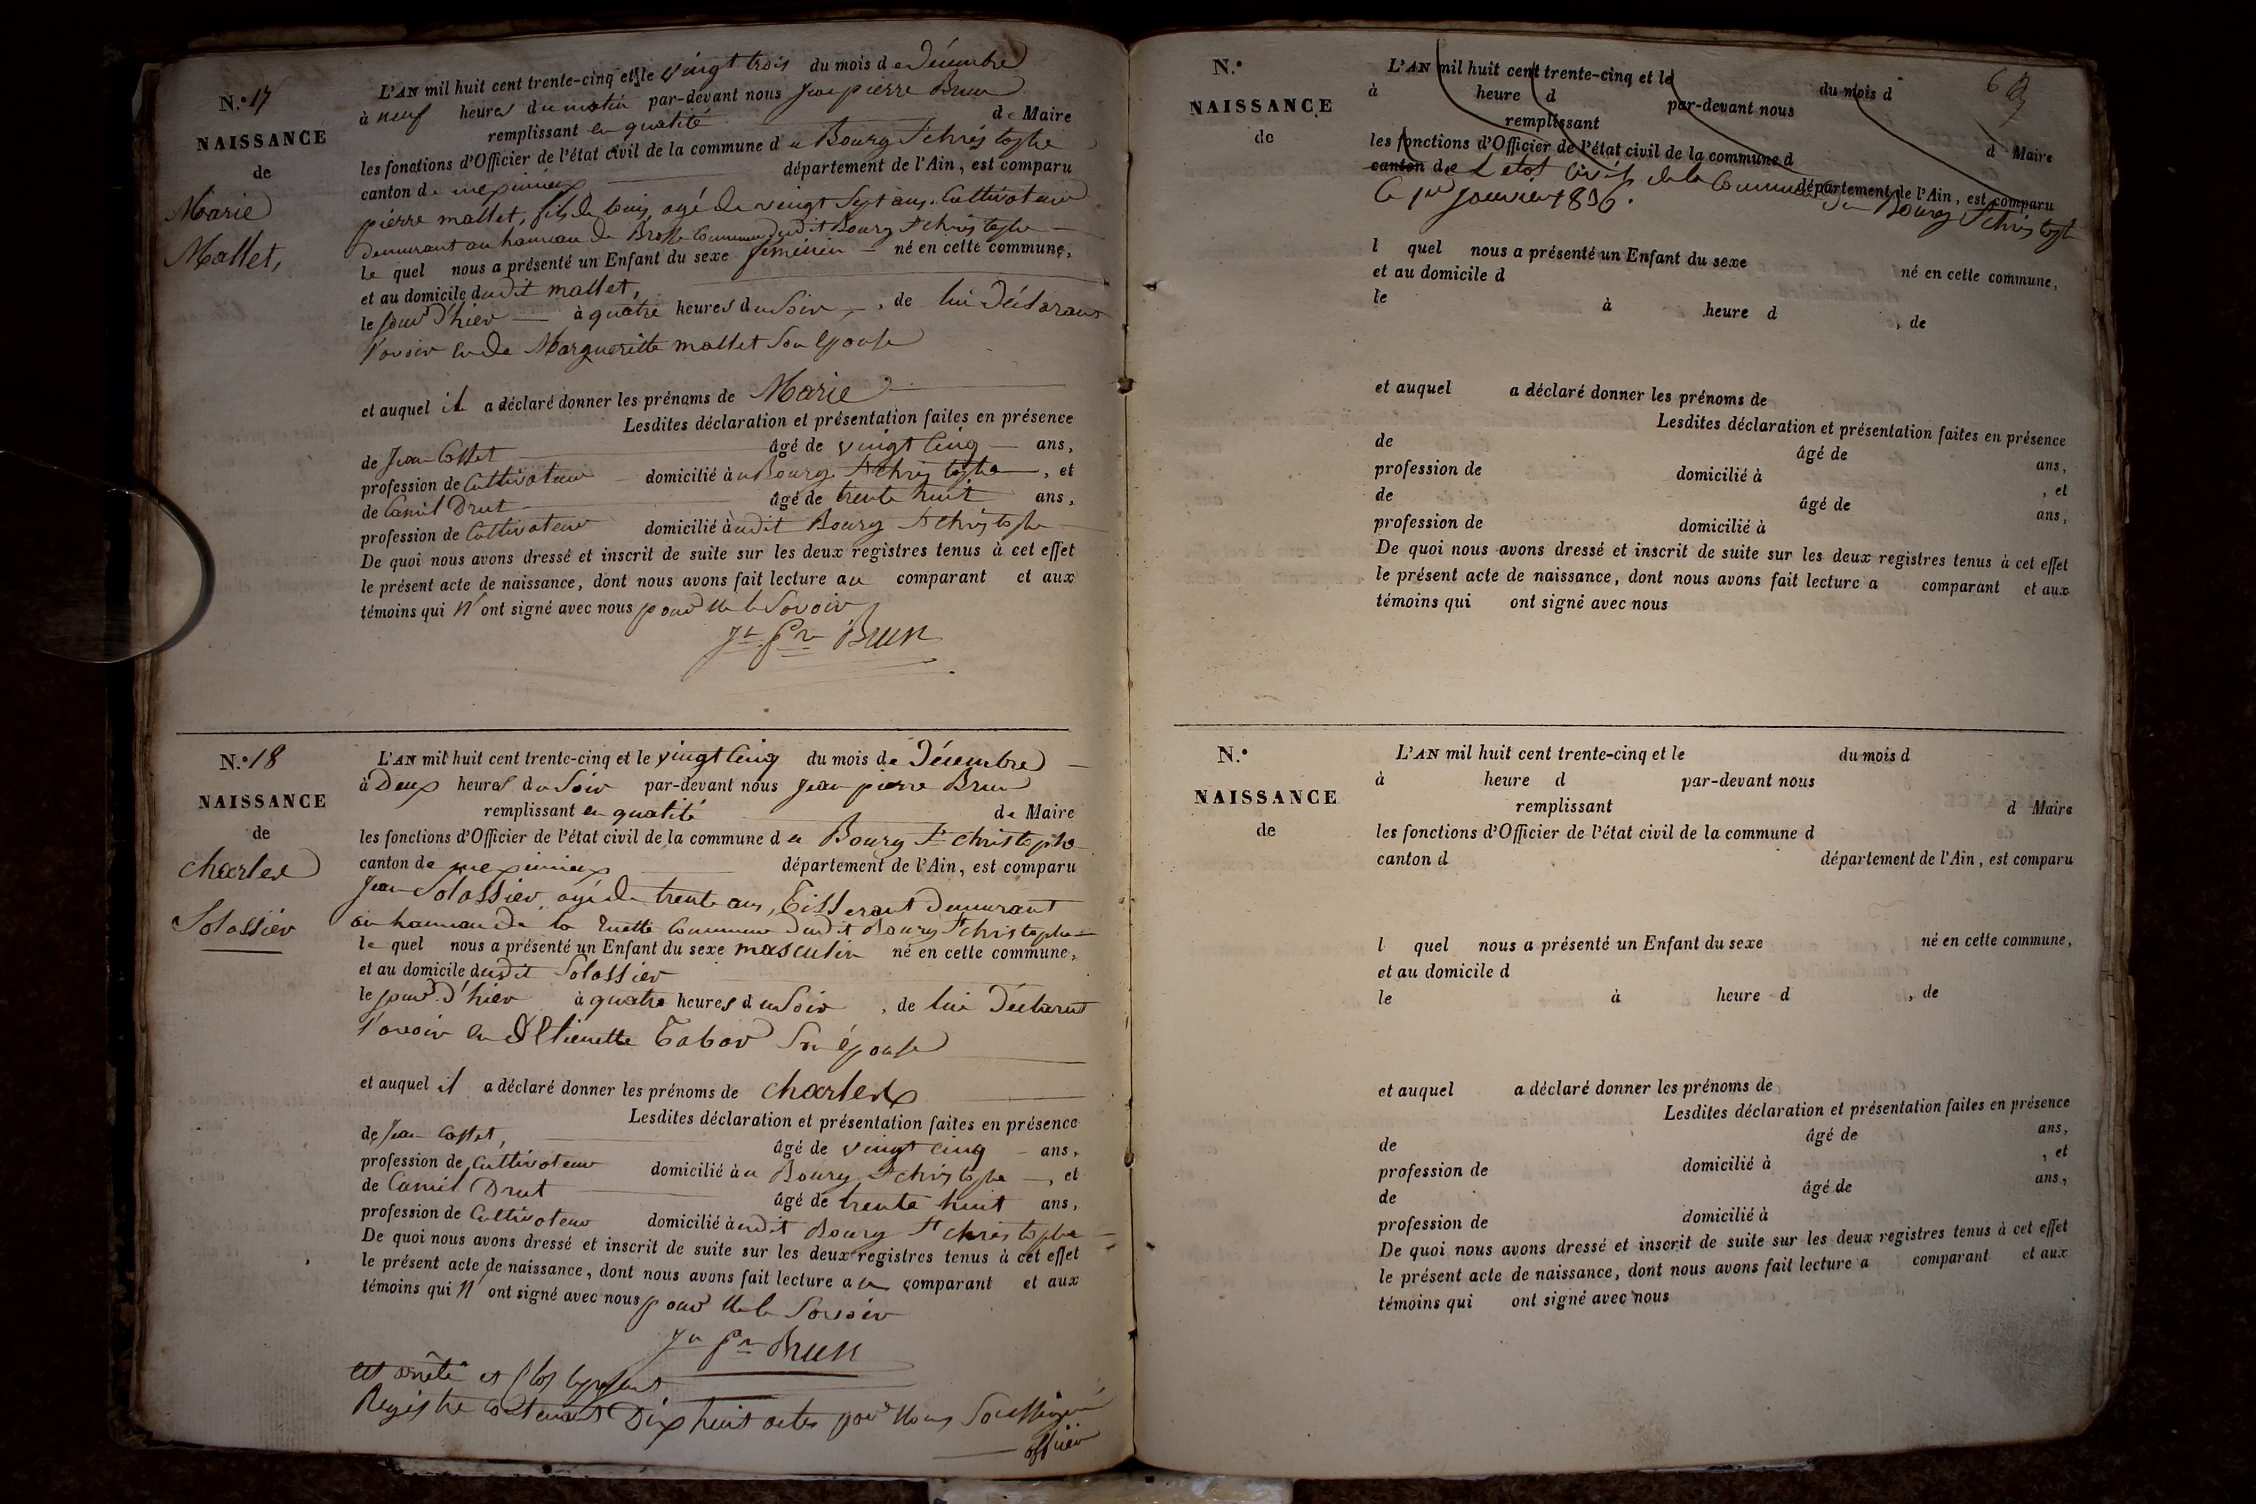 N.° 17
NAISSANCE
de
Marie
Mallet,
L'AN mil huit cent trente-cinq et le vingt trois du mois de Décembre
à neuf heures du matin par-devant nous Jean pierre Brun
remplissant en qualité de Maire
les fonctions d'Officier de l'état civil de la commune du Bourg St christophe
canton de meximieux département de l'Ain, est comparu
pierre mallet, fils de louis, agé de vingt Sept ans, Cultivateur
demeurant au hameau de Brosse Commune dudit Bourg St christophe
le quel nous a présenté un Enfant du sexe féminin né en cette commune,
et au domicile dudit mallet,
le jour d'hier à quatre heures du Soir, de lui Déclarant
l'avoir eu de Margueritte mallet Son épouse
et auquel il a déclaré donner les prénoms de Marie
Lesdites déclaration et présentation faites en présence
de Jean Cottet âgé de vingt Cinq ans,
profession de Cultivateur domicilié à u Bourg St christophe, et
de Camil Drut âgé de trente huit ans,
profession de Cultivateur domicilié à udit Bourg St christophe
De quoi nous avons dressé et inscrit de suite sur les deux registres tenus à cet effet
le présent acte de naissance, dont nous avons fait lecture au comparant et aux
témoins qui n'ont signé avec nous pour ne le Savoir
Jn Pre Brun
N.° 18
NAISSANCE
de
charles
Solassier
L'AN mil huit cent trente-cinq et le vingt Cinq du mois de Décembre
à Deux heures du Soir par-devant nous Jean pierre Brun
remplissant en qualité de Maire
les fonctions d'Officier de l'état civil de la commune du Bourg St christophe
canton de meximieux département de l'Ain, est comparu
Jean Solassier, agé de trente ans, Tisserant Demeurant
au hameau de la Ruette Commune dudit Bourg St christophe
le quel nous a présenté un Enfant du sexe masculin né en cette commune,
et au domicile dudit Solassier
le jour d'hier à quatre heures du Soir, de lui Déclarant
l'avoir eu d'Etienette Tabar Son épouse
et auquel il a déclaré donner les prénoms de charles
Lesdites déclaration et présentation faites en présence
de Jean Cottet, âgé de vingt cinq ans,
profession de Cultivateur domicilié à u Bourg St christophe, et
de Camil Drut âgé de trente huit ans,
profession de Cultivateur domicilié à udit Bourg St christophe
De quoi nous avons dressé et inscrit de suite sur les deux registres tenus à cet effet
le présent acte de naissance, dont nous avons fait lecture au comparant et aux
témoins qui n'ont signé avec nous pour ne le Savoir
Jn Pre Brun
est arrêté et Clos le présent
Registre Contenant Dix huit actes par Nous Soussigné
officier
N.°
NAISSANCE
de
L'AN mil huit cent trente-cinq et le du mois d
à heure d par-devant nous
remplissant d Maire
les fonctions d'Officier de l'état civil de la commune d
canton d département de l'Ain, est comparu
de L'état Civil de la Commune du Bourg St christophe
Ce 1er Janvier 1836.
l quel nous a présenté un Enfant du sexe né en cette commune,
et au domicile d
le à heure d , de
et auquel a déclaré donner les prénoms de
Lesdites déclaration et présentation faites en présence
de âgé de ans,
profession de domicilié à , et
de âgé de ans,
profession de domicilié à
De quoi nous avons dressé et inscrit de suite sur les deux registres tenus à cet effet
le présent acte de naissance, dont nous avons fait lecture a comparant et aux
témoins qui ont signé avec nous
N.°
NAISSANCE
de
L'AN mil huit cent trente-cinq et le du mois d
à heure d par-devant nous
remplissant d Maire
les fonctions d'Officier de l'état civil de la commune d
canton d département de l'Ain, est comparu
l quel nous a présenté un Enfant du sexe né en cette commune,
et au domicile d
le à heure d , de
et auquel a déclaré donner les prénoms de
Lesdites déclaration et présentation faites en présence
de âgé de ans,
profession de domicilié à , et
de âgé de ans,
profession de domicilié à
De quoi nous avons dressé et inscrit de suite sur les deux registres tenus à cet effet
le présent acte de naissance, dont nous avons fait lecture a comparant et aux
témoins qui ont signé avec nous